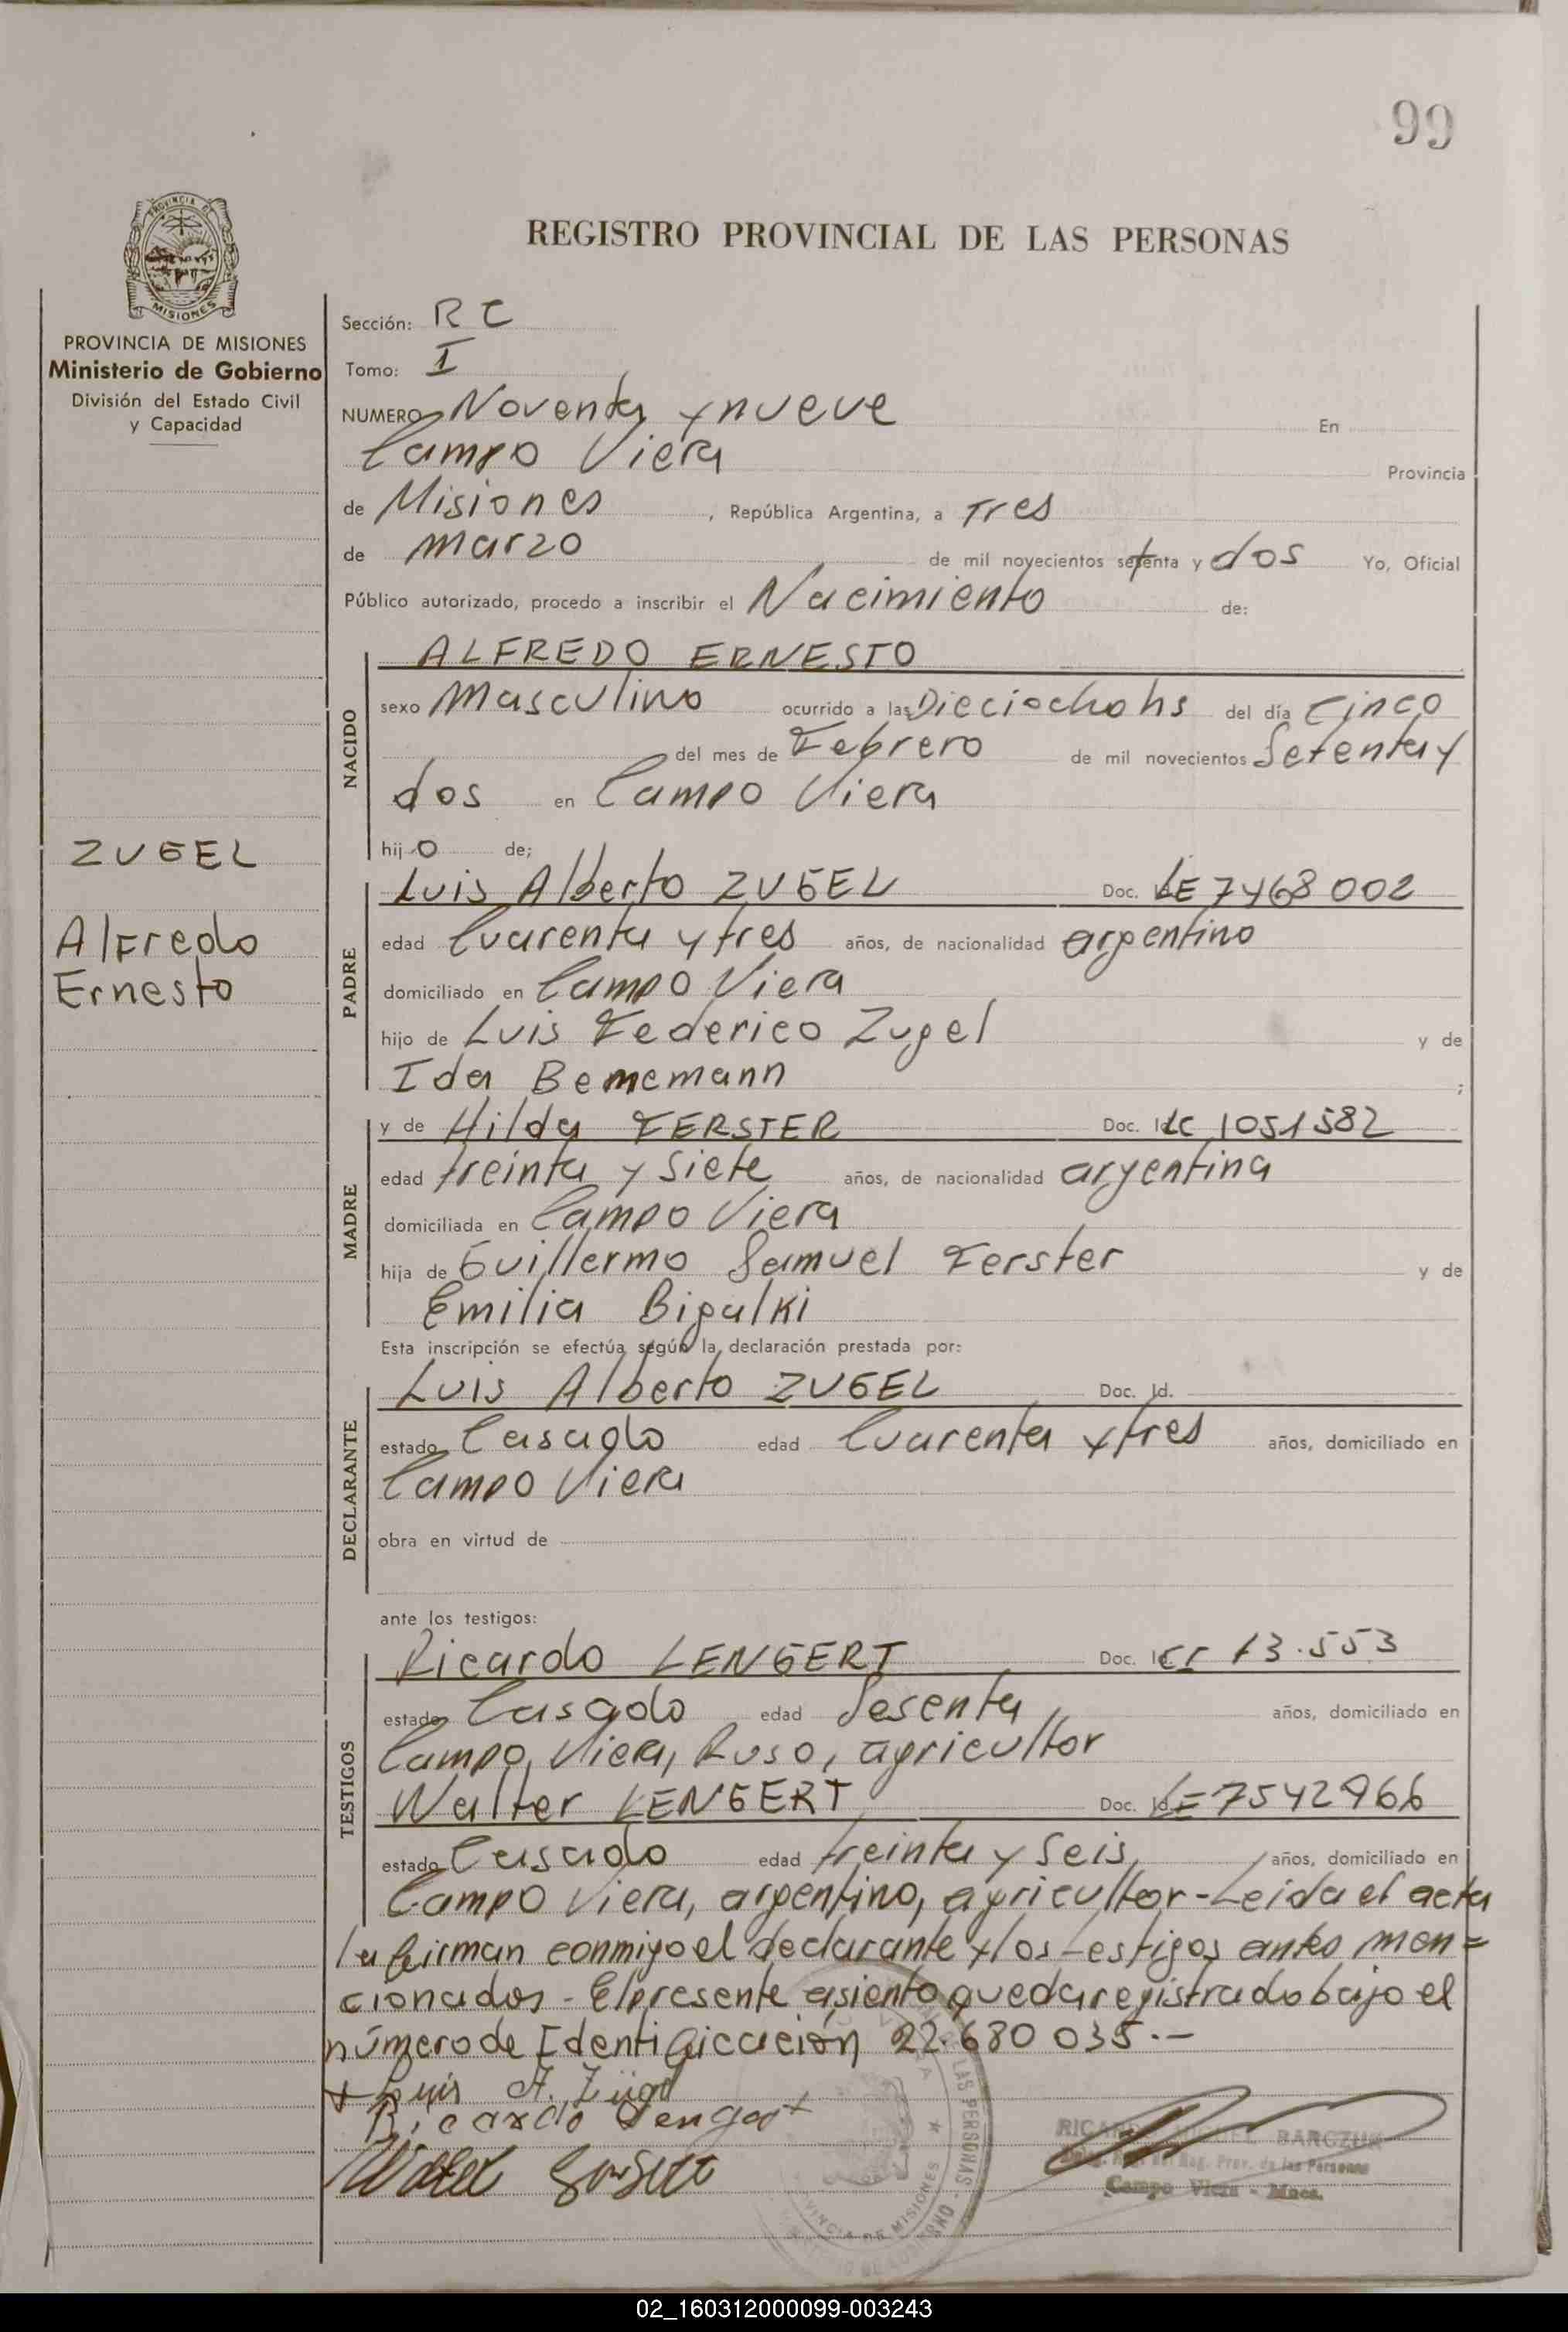 99
REGISTRO PROVINCIAL DE LAS PERSONAS
PROVINCIA DE MISIONES
Ministerio de Gobierno
División del Estado Civil
y Capacidad
ZUGEL
Alfredo
Ernesto
Sección: RC
Tomo: I
NUMERO Noventa y nueve En
Campo Viera Provincia
de Misiones, República Argentina, a Tres
de marzo de mil novecientos setenta y dos Yo, Oficial
Público autorizado, procedo a inscribir el Nacimiento de:
NACIDO
ALFREDO ERNESTO
sexo Masculino ocurrido a las Dieciocho hs del día Cinco
del mes de Febrero de mil novecientos Setenta y
dos en Campo Viera
hijo de;
PADRE
Luis Alberto ZUGEL Doc. LE 7468 002
edad Cuarenta y tres años, de nacionalidad argentino
domiciliado en Campo Viera
hijo de Luis Federico Zugel y de
Ida Bememann ;
MADRE
y de Hilda FERSTER Doc. Id. LC 1051582
edad treinta y siete años, de nacionalidad argentina
domiciliada en Campo Viera
hija de Guillermo Samuel Ferster y de
Emilia Bigalki
Esta inscripción se efectúa según la declaración prestada por:
DECLARANTE
Luis Alberto ZUGEL Doc. Id.
estado Casado edad Cuarenta y tres años, domiciliado en
Campo Viera
obra en virtud de
ante los testigos:
TESTIGOS
Ricardo LENGERT Doc. 13.553
estado Casado edad Sesenta años, domiciliado en
Campo Viera, Ruso, agricultor
Walter LENGERT Doc. Id. LE 7542966
estado Casado edad treinta y seis, años, domiciliado en
Campo Viera, argentino, agricultor - Leida el acta
la firman conmigo el declarante y los testigos antes men=
cionados - El presente asiento queda registrado bajo el
número de Identificación 22.680 035.-
Luis A. Zügel
Ricardo Lengert
RICARDO BARCZUK
Reg. Prov. de las Personas
Campo Viera - Mnes.
LAS PERSONAS
PROVINCIA DE MISIONES
02_160312000099-003243